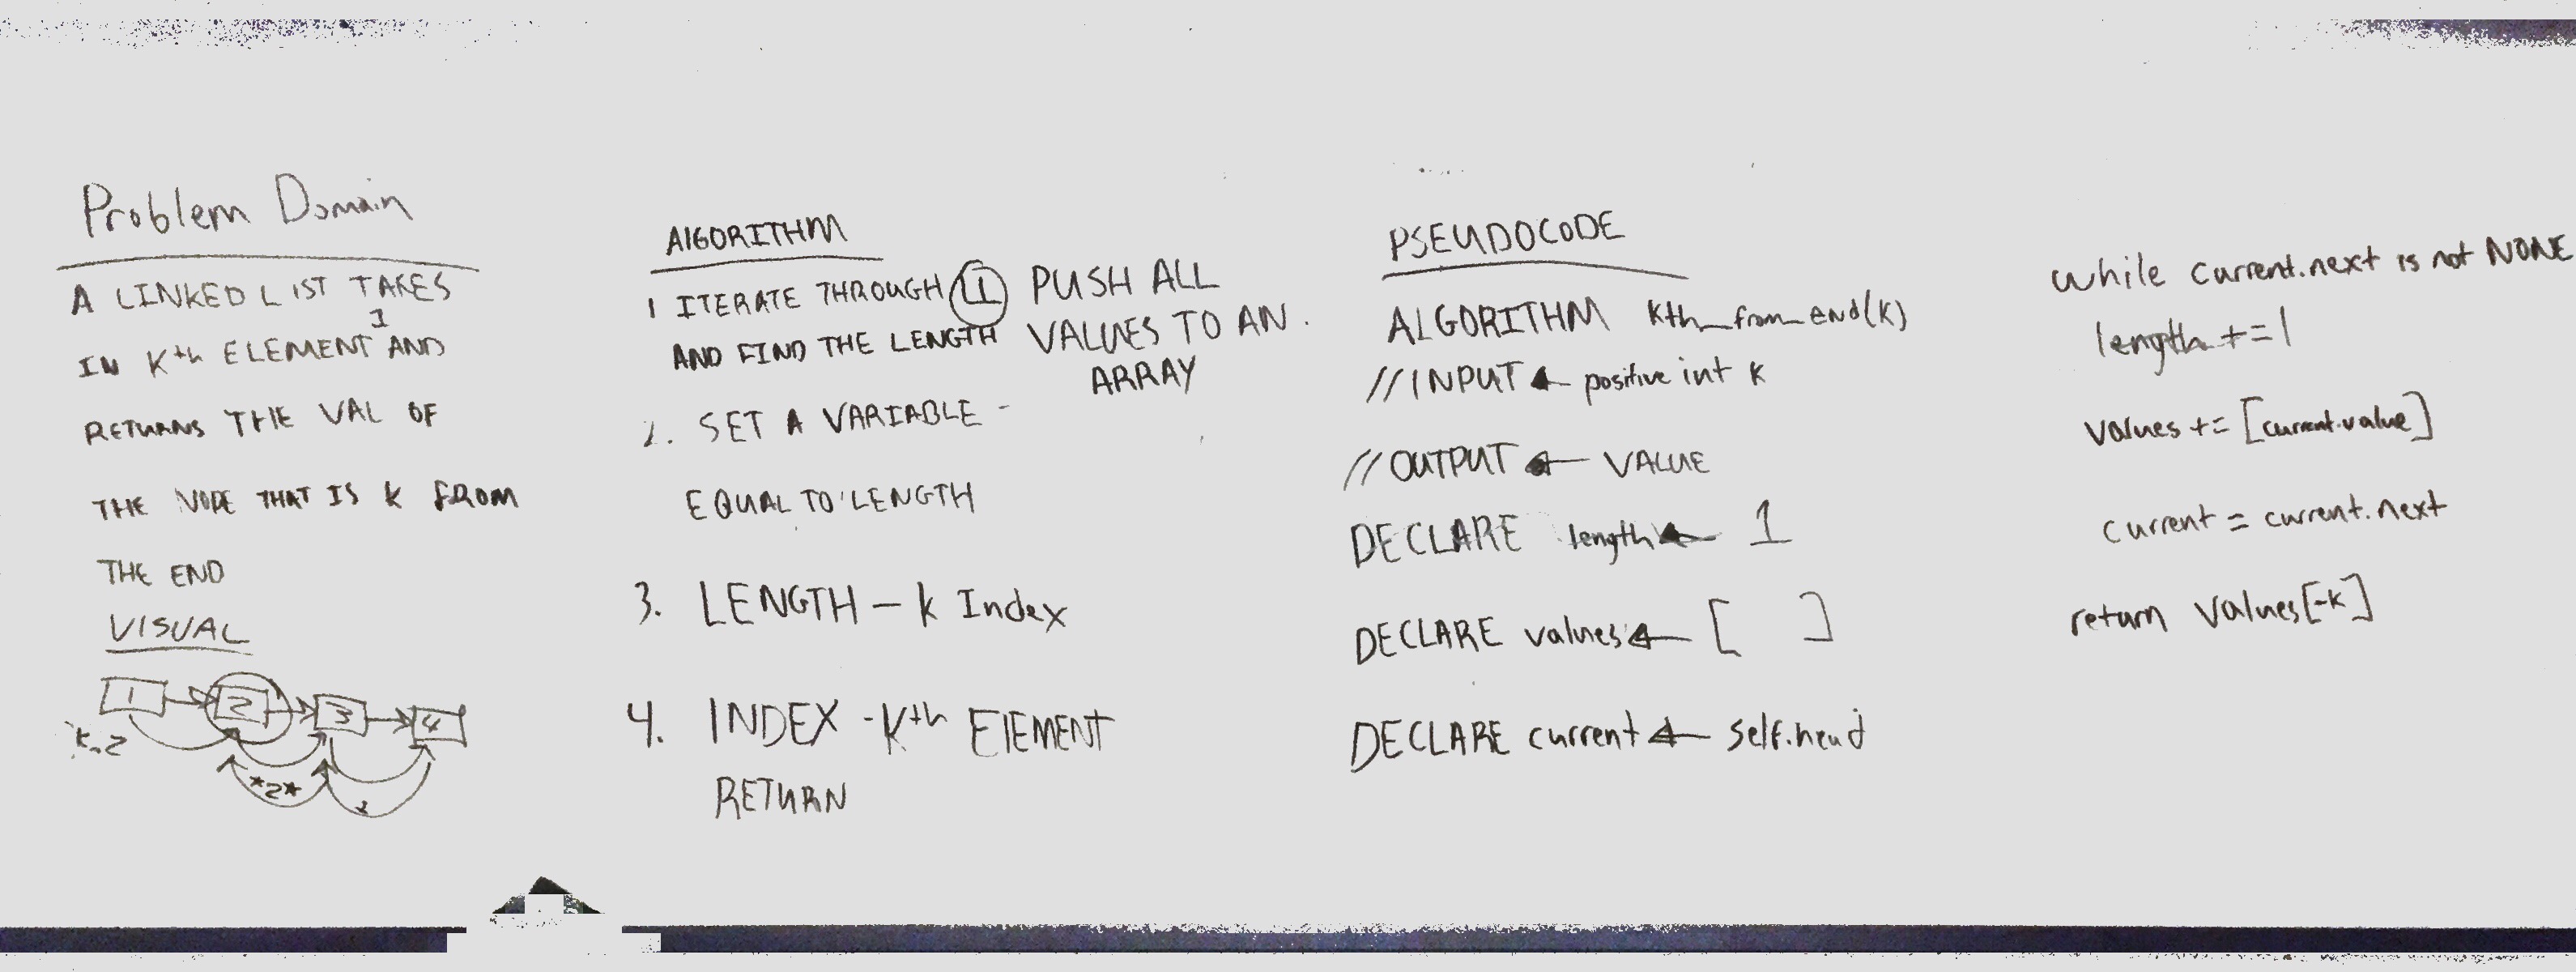 Problem Domain
A LINKED LIST TAKES
IN Kth ELEMENT AND
RETURNS THE VAL OF
THE NODE THAT IS K FROM
THE END
VISUAL
1 2 3 4
K=2
*2*
ALGORITHM
1 ITERATE THROUGH LL PUSH ALL
AND FIND THE LENGTH VALUES TO AN.
ARRAY
2. SET A VARIABLE -
EQUAL TO LENGTH
3. LENGTH - k Index
4. INDEX -Kth ELEMENT
RETURN
PSEUDOCODE
ALGORITHM kth_from_end(k)
//INPUT ← positive int k
//OUTPUT ← VALUE
DECLARE length ← 1
DECLARE values ← [ ]
DECLARE current ← self.head
while current.next is not NONE
length +=1
values += [current.value]
current = current.next
return values[-k]